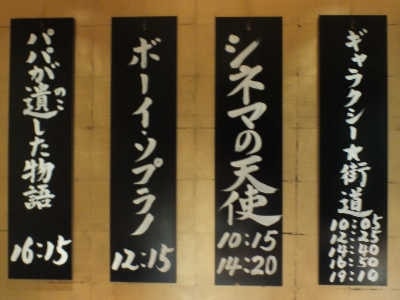 ギャラクシー★街道
10:05
12:25
14:40
16:50
19:10
シネマの天使
10:15
14:20
ボーイ・ソプラノ
12:15
パパが遺した物語
のこ
16:15